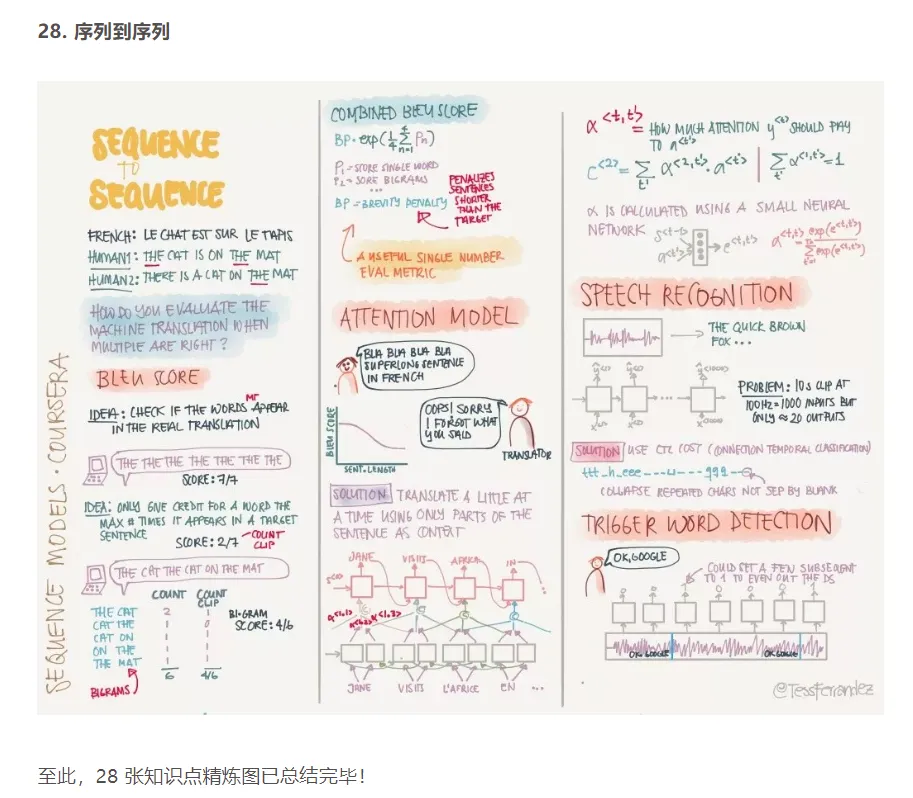 28. 序列到序列
SEQUENCE
TO
SEQUENCE
FRENCH: LE CHAT EST SUR LE TAPIS
HUMAN1: THE CAT IS ON THE MAT
HUMAN2: THERE IS A CAT ON THE MAT
HOW DO YOU EVALUATE THE
MACHINE TRANSLATION WHEN
MULTIPLE ARE RIGHT?
BLEU SCORE
MT
IDEA: CHECK IF THE WORDS APPEAR
IN THE REAL TRANSLATION
THE THE THE THE THE THE THE
SCORE: 7/7
IDEA: ONLY GIVE CREDIT FOR A WORD THE
MAX # TIMES IT APPEARS IN A TARGET
SENTENCE
SCORE: 2/7
COUNT
CLIP
THE CAT THE CAT ON THE MAT
COUNT COUNT
CLIP
THE CAT 2 1
CAT THE 1 0
CAT ON 1 1
ON THE 1 1
THE MAT 1 1
6 4/6
BI-GRAM
SCORE: 4/6
BIGRAMS
SEQUENCE MODELS · COURSERA
COMBINED BLEU SCORE
P1 = SCORE SINGLE WORD
P2 = SORE BIGRAMS
...
BP = BREVITY PENALTY
PENALIZES
SENTENCES
SHORTER
THAN THE
TARGET
A USEFUL SINGLE NUMBER
EVAL METRIC
ATTENTION MODEL
BLA BLA BLA BLA
SUPERLONG SENTENCE
IN FRENCH
OOPS! SORRY
I FORGOT WHAT
YOU SAID
TRANSLATOR
BLEU SCORE
SENT. LENGTH
SOLUTION TRANSLATE A LITTLE AT
A TIME USING ONLY PARTS OF THE
SENTENCE AS CONTEXT
JANE VISITS AFRICA IN ...
S<0>
α<1,1> α<1,2> α<1,3>
C C C
JANE VISITS L'AFRICE EN ...
α<t,t'> = HOW MUCH ATTENTION y<t> SHOULD PAY
TO a<t'>
C<2> = Σt' α<2,t'> · a<t'> | Σt' α<1,t'> = 1
α IS CALCULATED USING A SMALL NEURAL
NETWORK
S<t-1>
a<t'>
e<t,t'>
SPEECH RECOGNITION
THE QUICK BROWN
FOX...
ŷ<1> ŷ<2> ŷ<1000>
x<1> x<2> x<1000>
PROBLEM: 10s CLIP AT
100Hz = 1000 INPUTS BUT
ONLY ≈ 20 OUTPUTS
SOLUTION USE CTC COST (CONNECTION TEMPORAL CLASSIFICATION)
ttt_h_eee---⊔---qqq--
COLLAPSE REPEATED CHARS NOT SEP BY BLANK
TRIGGER WORD DETECTION
OK, GOOGLE
COULD SET A FEW SUBSEQUENT
TO 1 TO EVEN OUT THE DS
OK, GOOGLE OK, GOOGLE
@TessFerrandez
至此，28 张知识点精炼图已总结完毕！